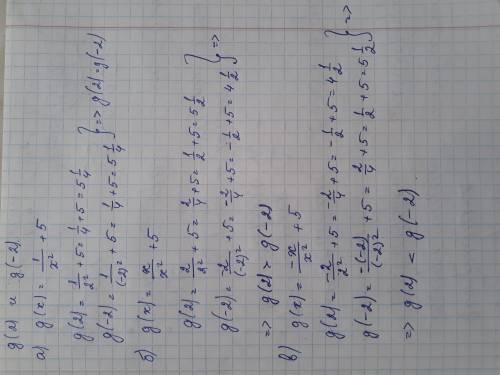 g(2) и g(-2)
а) g(x) = 1/x² + 5
g(2) = 1/2² + 5 = 1/4 + 5 = 5 1/4
g(-2) = 1/(-2)² + 5 = 1/4 + 5 = 5 1/4 } => g(2) = g(-2)
б) g(x) = x/x² + 5
g(2) = 2/2² + 5 = 2/4 + 5 = 1/2 + 5 = 5 1/2
g(-2) = -2/(-2)² + 5 = -2/4 + 5 = -1/2 + 5 = 4 1/2 } =>
=> g(2) > g(-2)
в) g(x) = -x/x² + 5
g(2) = -2/2² + 5 = -2/4 + 5 = -1/2 + 5 = 4 1/2
g(-2) = -(-2)/(-2)² + 5 = 2/4 + 5 = 1/2 + 5 = 5 1/2 } =>
=> g(2) < g(-2)